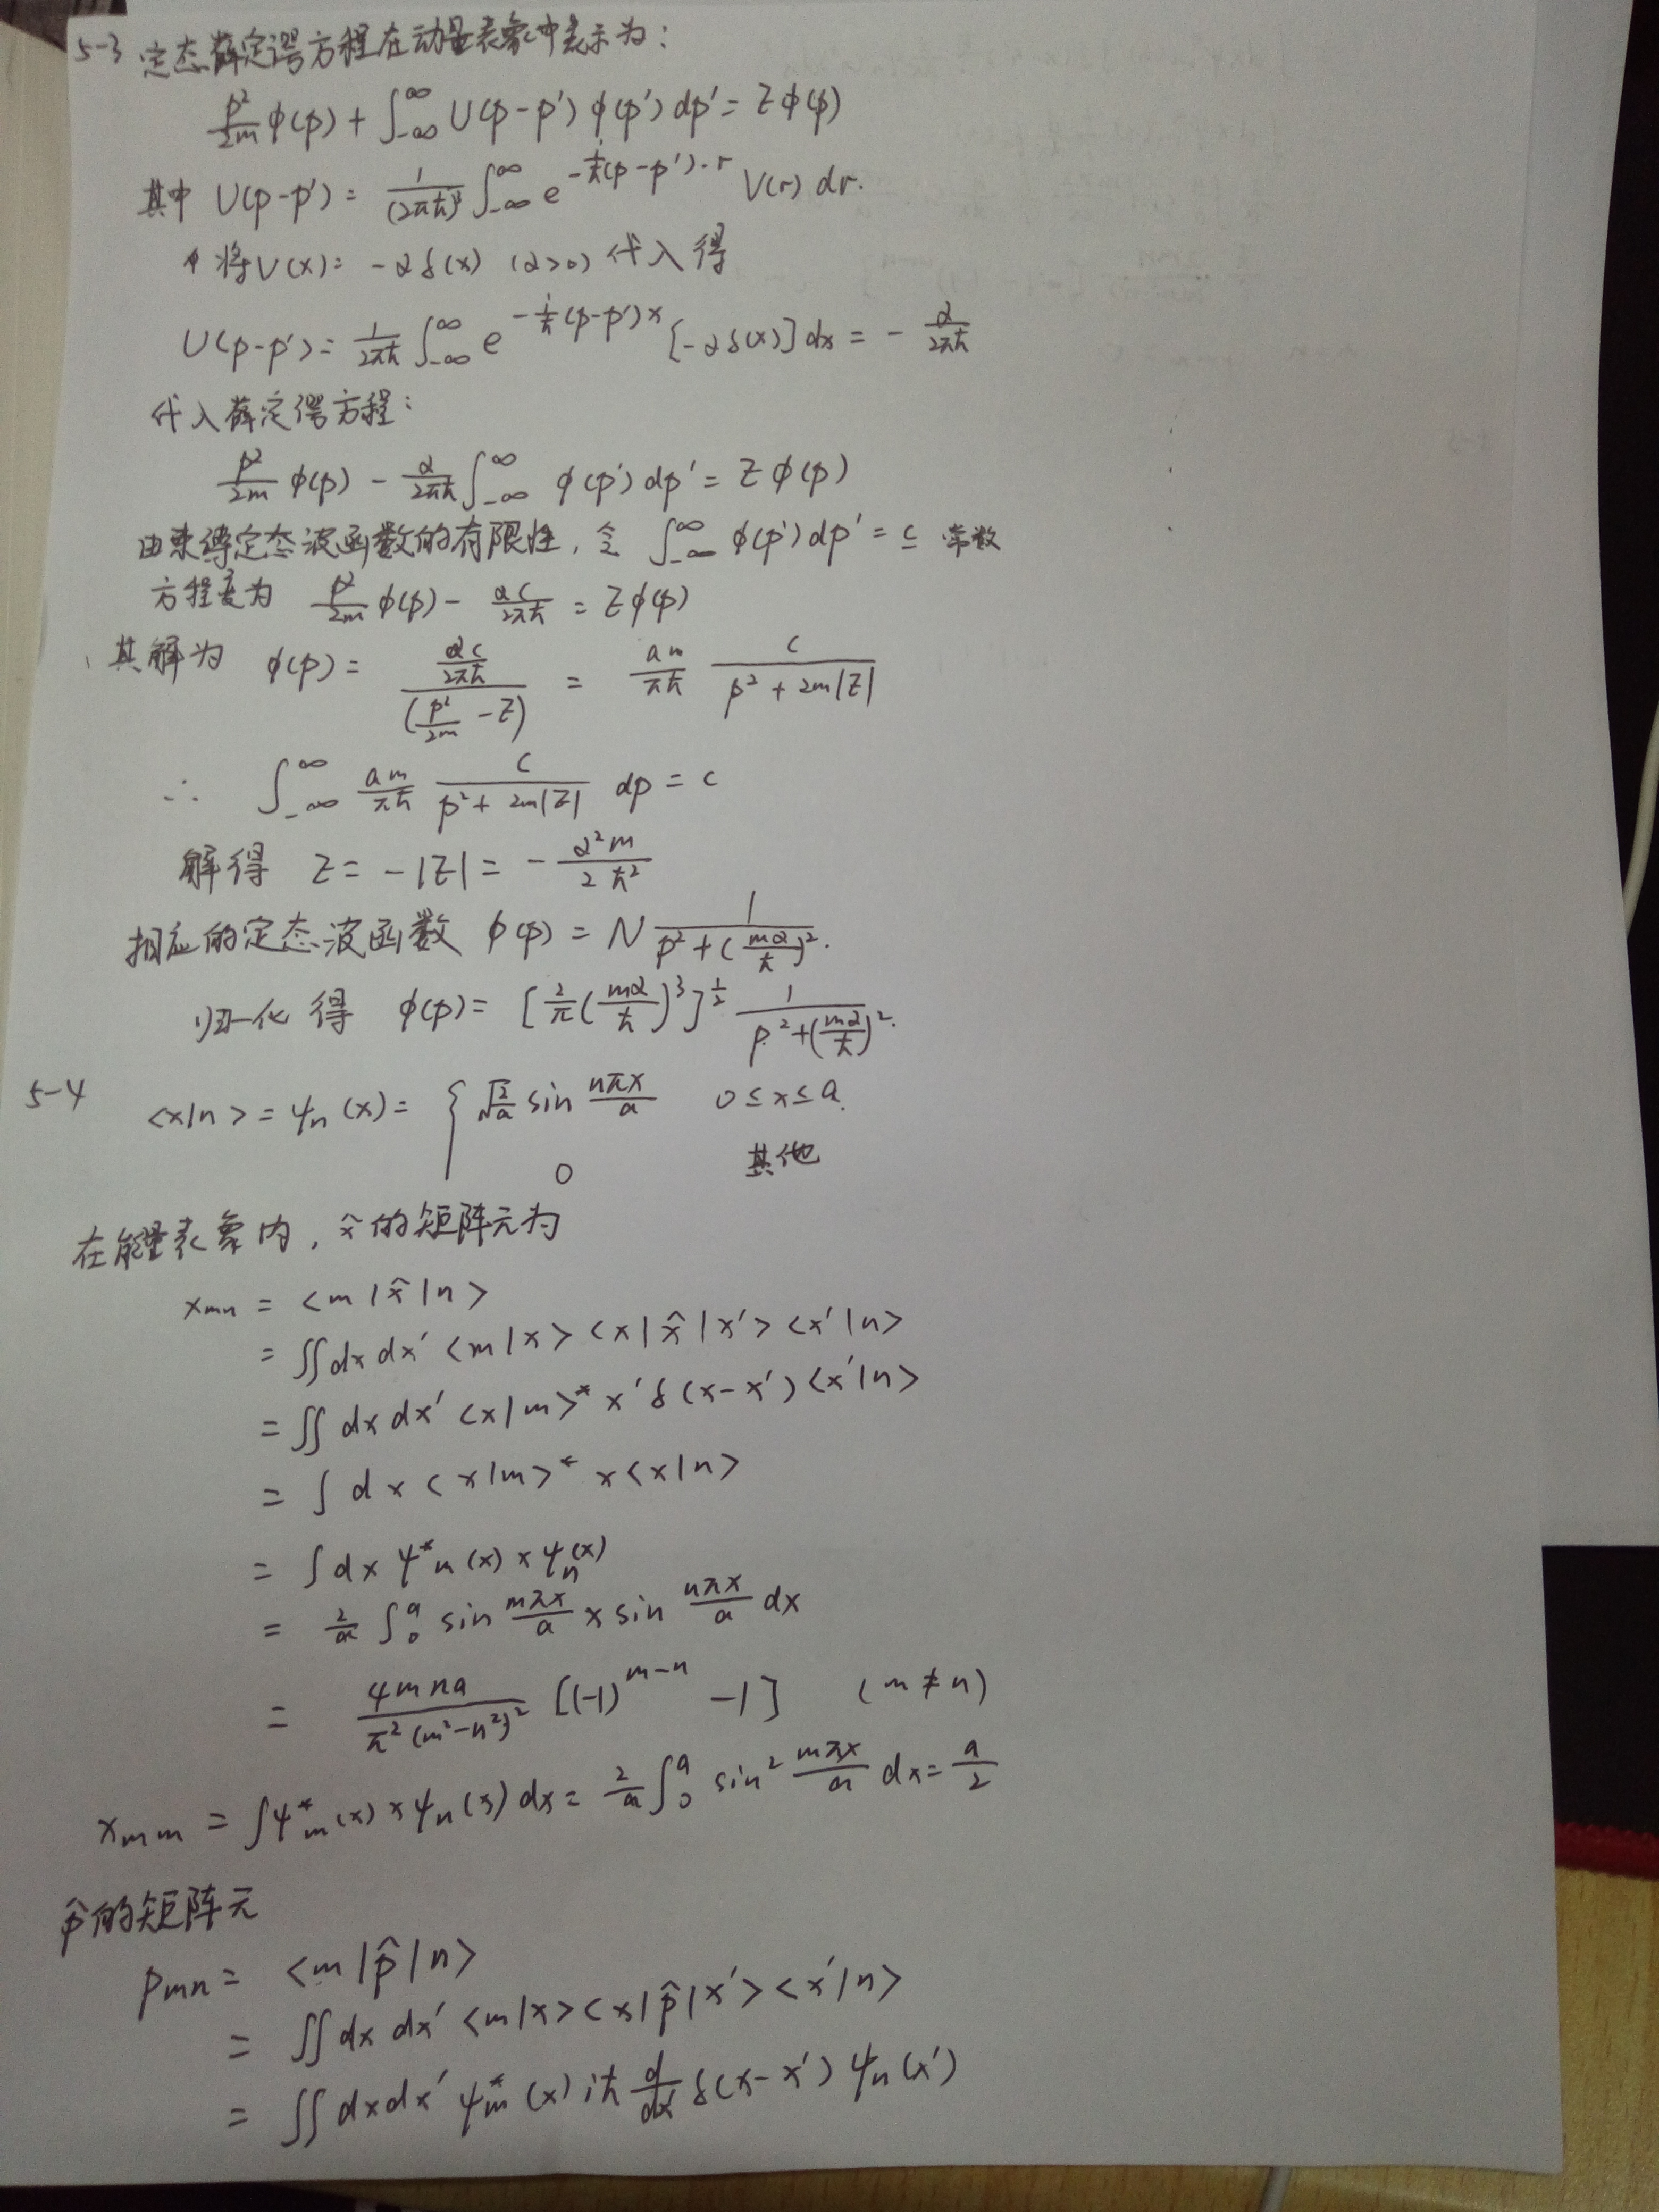 5-3 定态薛定谔方程在动量表象中表示为:
p²/2m φ(p) + ∫_{-∞}^{∞} U(p-p') φ(p') dp' = E φ(p)
其中 U(p-p') = 1/(2πħ)³ ∫_{-∞}^{∞} e^{-i/ħ(p-p')·r} V(r) dr.
将V(x) = -αδ(x) (α>0) 代入得
U(p-p') = 1/2πħ ∫_{-∞}^{∞} e^{-i/ħ(p-p')x} [-αδ(x)] dx = - α/2πħ
代入薛定谔方程:
p²/2m φ(p) - α/2πħ ∫_{-∞}^{∞} φ(p') dp' = E φ(p)
由束缚定态波函数的有限性, 令 ∫_{-∞}^{∞} φ(p') dp' = c 常数
方程变为 p²/2m φ(p) - αc/2πħ = E φ(p)
其解为 φ(p) = (αc/2πħ)/(p²/2m - E) = am/πħ c/(p² + 2m|E|)
∴ ∫_{-∞}^{∞} am/πħ c/(p² + 2m|E|) dp = c
解得 E = -|E| = - α²m/2ħ²
相应的定态波函数 φ(p) = N 1/(p² + (mα/ħ)²).
归一化得 φ(p) = [2/π (mα/ħ)³]^{1/2} 1/(p² + (mα/ħ)²).
5-4 <x|n> = ψ_n(x) = { √(2/a) sin nπx/a 0≤x≤a.
0 其他
在能量表象内, x̂的矩阵元为
x_{mn} = <m|x̂|n>
= ∬dx dx' <m|x> <x|x̂|x'> <x'|n>
= ∬ dx dx' <x|m>* x'δ(x-x') <x'|n>
= ∫ dx <x|m>* x <x|n>
= ∫dx ψ*_m(x) x ψ_n(x)
= 2/a ∫_0^a sin mπx/a x sin nπx/a dx
= 4mna/π²(m²-n²)² [(-1)^{m-n} -1] (m≠n)
x_{mm} = ∫ψ*_m(x) x ψ_n(x) dx = 2/a ∫_0^a sin² mπx/a dx = a/2
p̂的矩阵元
p_{mn} = <m|p̂|n>
= ∬dx dx' <m|x> <x|p̂|x'> <x'|n>
= ∬dxdx' ψ*_m(x) iħ d/dx' δ(x-x') ψ_n(x')